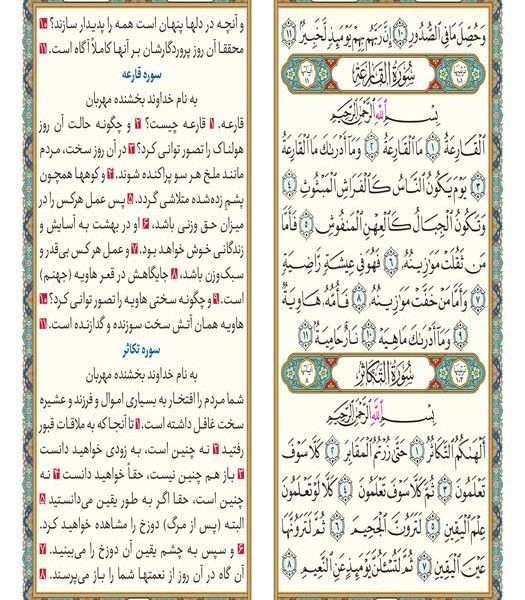 وَحُصِّلَ مَا فِی الصُّدُورِ ۱۰ إِنَّ رَبَّهُم بِهِمْ يَوْمَئِذٍ لَّخَبِيرٌ ۱۱
سُورَةُ القَارِعَة
بِسْمِ اللَّهِ الرَّحْمَٰنِ الرَّحِيمِ
الْقَارِعَةُ ۱ مَا الْقَارِعَةُ ۲ وَمَا أَدْرَىٰكَ مَا الْقَارِعَةُ
۳ يَوْمَ يَكُونُ النَّاسُ كَالْفَرَاشِ الْمَبْثُوثِ ۴
وَتَكُونُ الْجِبَالُ كَالْعِهْنِ الْمَنفُوشِ ۵ فَأَمَّا
مَن ثَقُلَتْ مَوَٰزِينُهُ ۶ فَهُوَ فِی عِيشَةٍ رَّاضِيَةٍ
۷ وَأَمَّا مَنْ خَفَّتْ مَوَٰزِينُهُ ۸ فَأُمُّهُ هَاوِيَةٌ
۹ وَمَا أَدْرَىٰكَ مَا هِيَهْ ۱۰ نَارٌ حَامِيَةٌ ۱۱
سُورَةُ التَّكَاثُر
بِسْمِ اللَّهِ الرَّحْمَٰنِ الرَّحِيمِ
أَلْهَىٰكُمُ التَّكَاثُرُ ۱ حَتَّىٰ زُرْتُمُ الْمَقَابِرَ ۲ كَلَّا سَوْفَ
تَعْلَمُونَ ۳ ثُمَّ كَلَّا سَوْفَ تَعْلَمُونَ ۴ كَلَّا لَوْ تَعْلَمُونَ
عِلْمَ الْيَقِينِ ۵ لَتَرَوُنَّ الْجَحِيمَ ۶ ثُمَّ لَتَرَوُنَّهَا
عَيْنَ الْيَقِينِ ۷ ثُمَّ لَتُسْئَلُنَّ يَوْمَئِذٍ عَنِ النَّعِيمِ ۸
و آنچه در دلها پنهان است همه را پدیدار سازند؟ ۱۰
محققا آن روز پروردگارشان بر آنها کاملاً آگاه است. ۱۱
سوره قارعه
به نام خداوند بخشنده مهربان
قارعه. ۱ قارعه چیست؟ ۲ و چگونه حالت آن روز
هولناک را تصور توانی کرد؟ ۳ در آن روز سخت، مردم
مانند ملخ هر سو پراکنده شوند. ۴ و کوهها همچون
پشم زده‌شده متلاشی گردد. ۵ پس عمل هر کس را در
میزان حق وزنی باشد، ۶ او در بهشت به آسایش و
زندگانی خوش خواهد بود. ۷ و عمل هر کس بی‌قدر و
سبک‌وزن باشد، ۸ جایگاهش در قعر هاویه (جهنم)
است. ۹ و چگونه سختی هاویه را تصور توانی کرد؟ ۱۰
هاویه همان آتش سخت سوزنده و گدازنده است. ۱۱
سوره تکاثر
به نام خداوند بخشنده مهربان
شما مردم را افتخار به بسیاری اموال و فرزند و عشیره
سخت غافل داشته است. ۱ تا آنجا که به ملاقات قبور
رفتید ۲ نه چنین است، به زودی خواهید دانست
۳ باز هم چنین نیست، حقاً خواهید دانست ۴ نه
چنین است، حقا اگر به طور یقین می‌دانستید ۵
البته (پس از مرگ) دوزخ را مشاهده خواهید کرد.
۶ و سپس به چشم یقین آن دوزخ را می‌بینید. ۷
آن گاه در آن روز از نعمتها شما را باز می‌پرسند. ۸